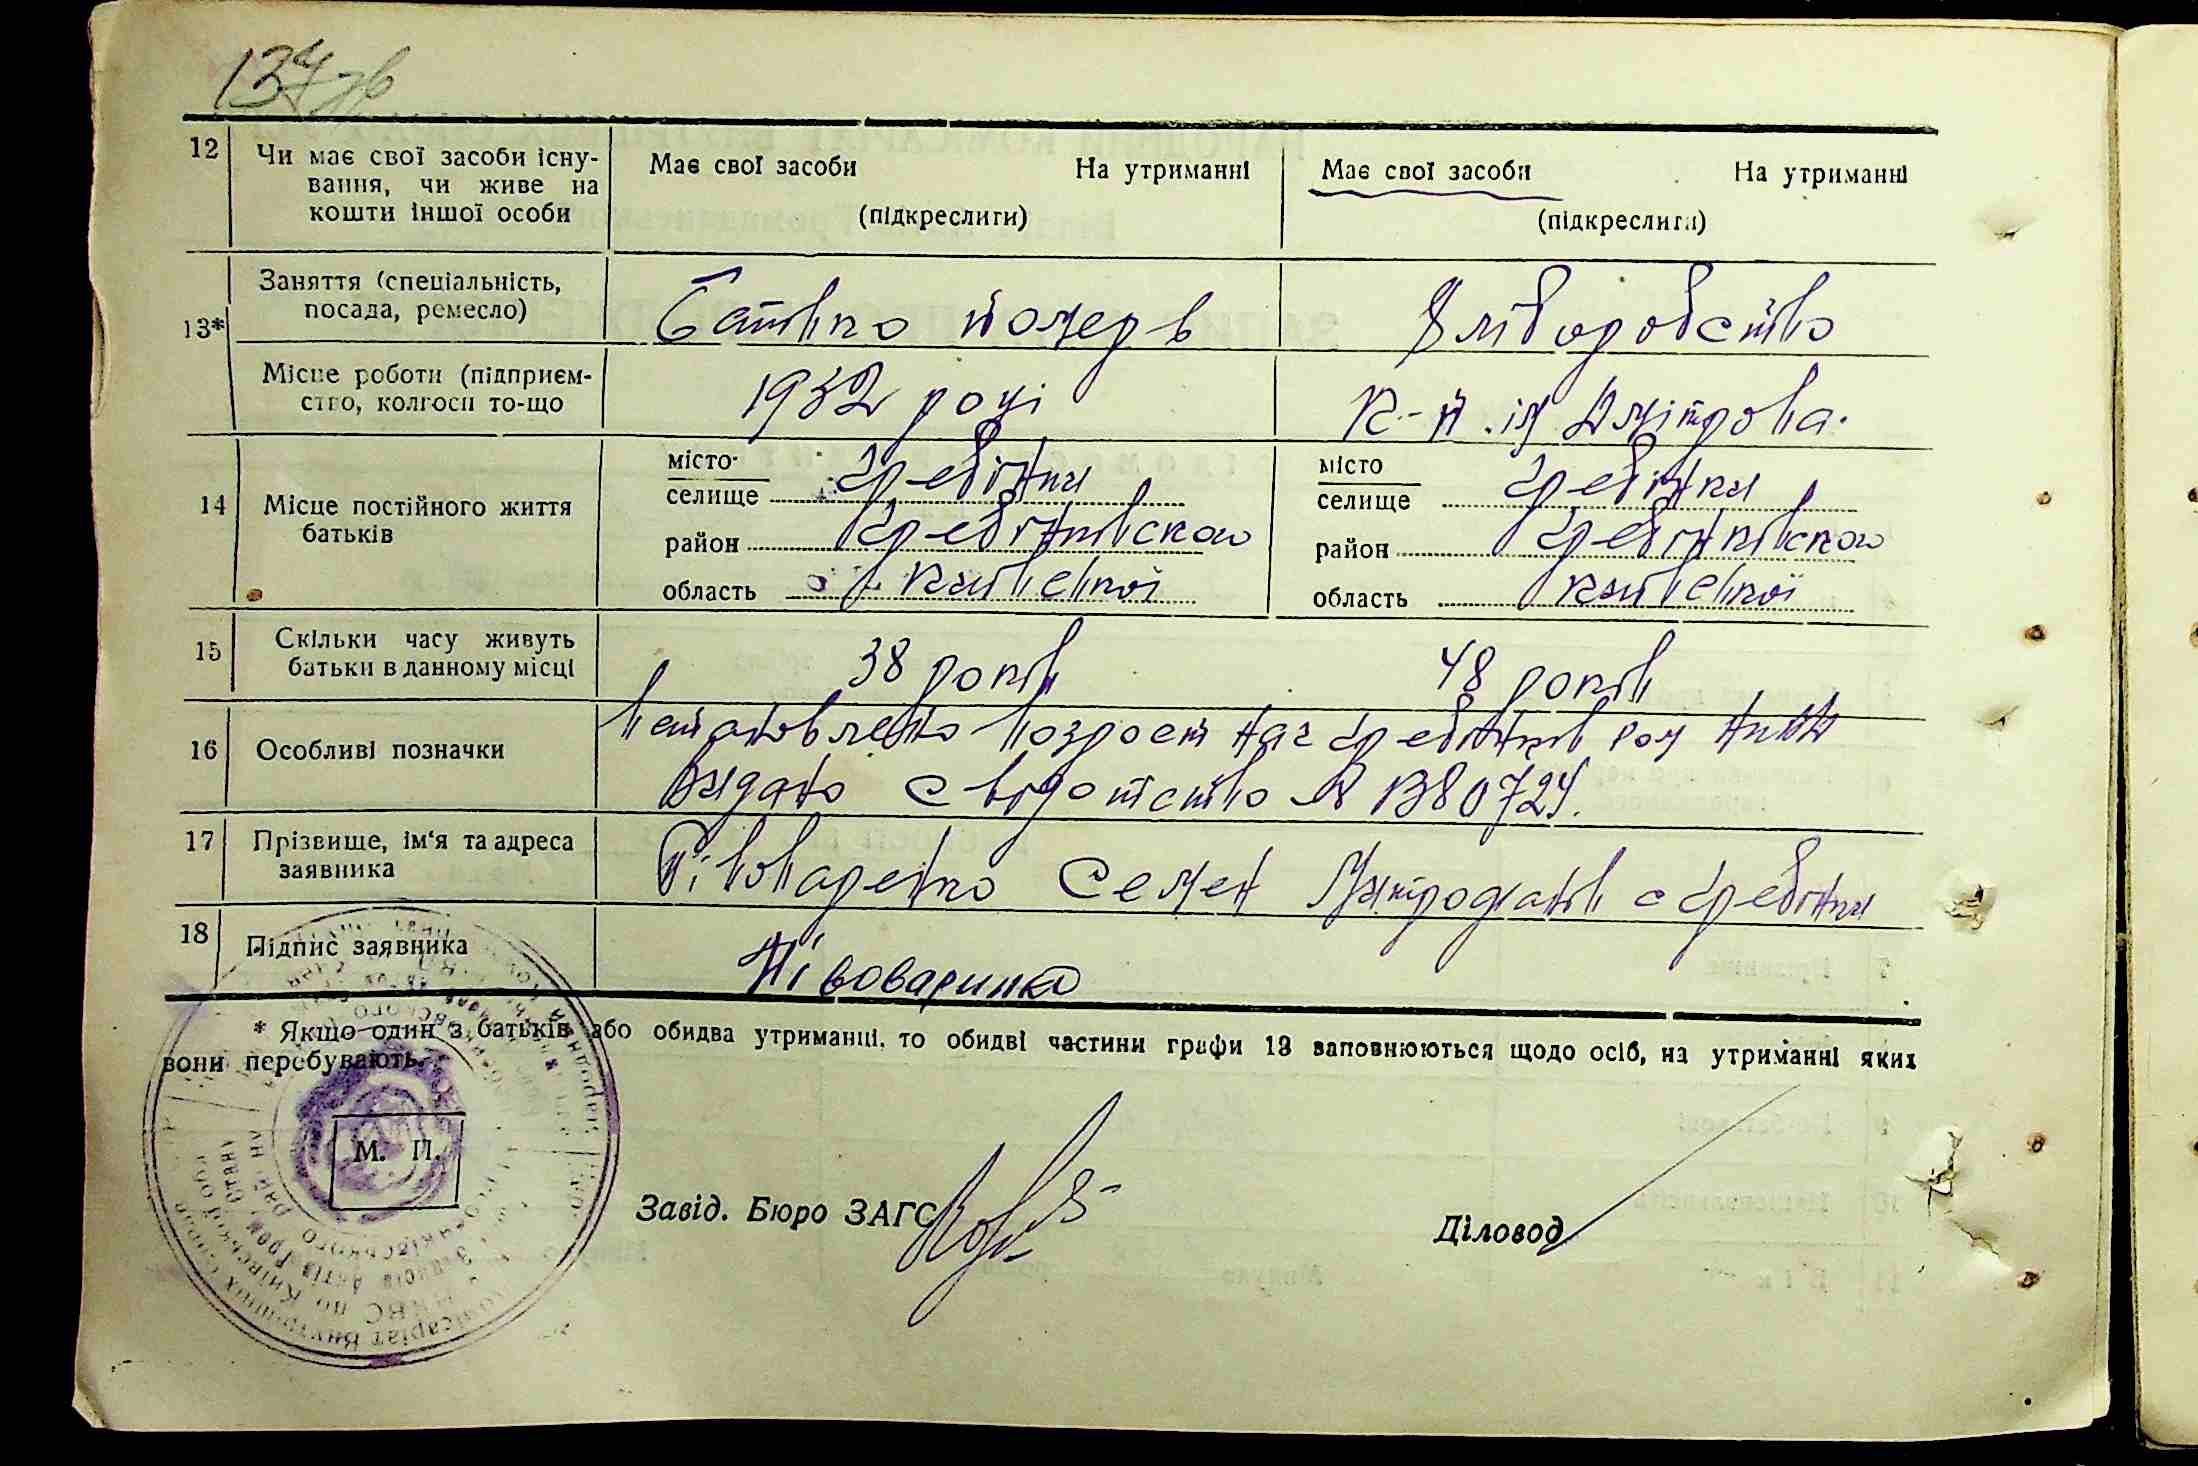 137 зв
12 Чи має свої засоби існу-
вання, чи живе на
кошти іншої особи
Має свої засоби На утриманні
(підкреслиги)
Має свої засоби На утриманні
(підкреслиги)
13*
Заняття (спеціальність,
посада, ремесло)
Батько помер в
Хліборобство
Місце роботи (підприєм-
ство, колгосп то-що
1932 році
к-п ім Дмітрова.
14 Місце постійного життя
батьків
місто
селище Гребінки
район Гребінківского
область Київської
місто
селище Гребінки
район Гребінківского
область Київської
15 Скільки часу живуть
батьки в данному місці
38 років
48 років
16 Особливі позначки
Встановлено возрост нач Гребінків
видано свідотство № 380724.
17 Прізвище, ім‘я та адреса
заявника
Півоваренко Семен Митрофанов с Гребінки
18 Підпис заявника
Півоваринко
* Якщо один з батьків або обидва утриманці, то обидві частини графи 13 заповнюються щодо осіб, на утриманні яких
вони перебувають.
М. П.
Завід. Бюро ЗАГС
Діловод